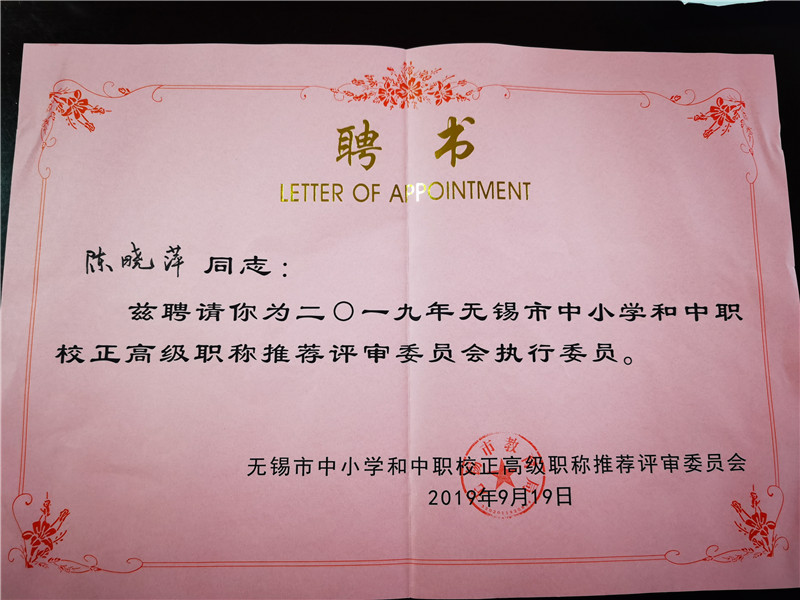 聘书
LETTER OF APPOINTMENT
陈晓萍 同志：
兹聘请你为二〇一九年无锡市中小学和中职
校正高级职称推荐评审委员会执行委员。
无锡市中小学和中职校正高级职称推荐评审委员会
2019年9月19日